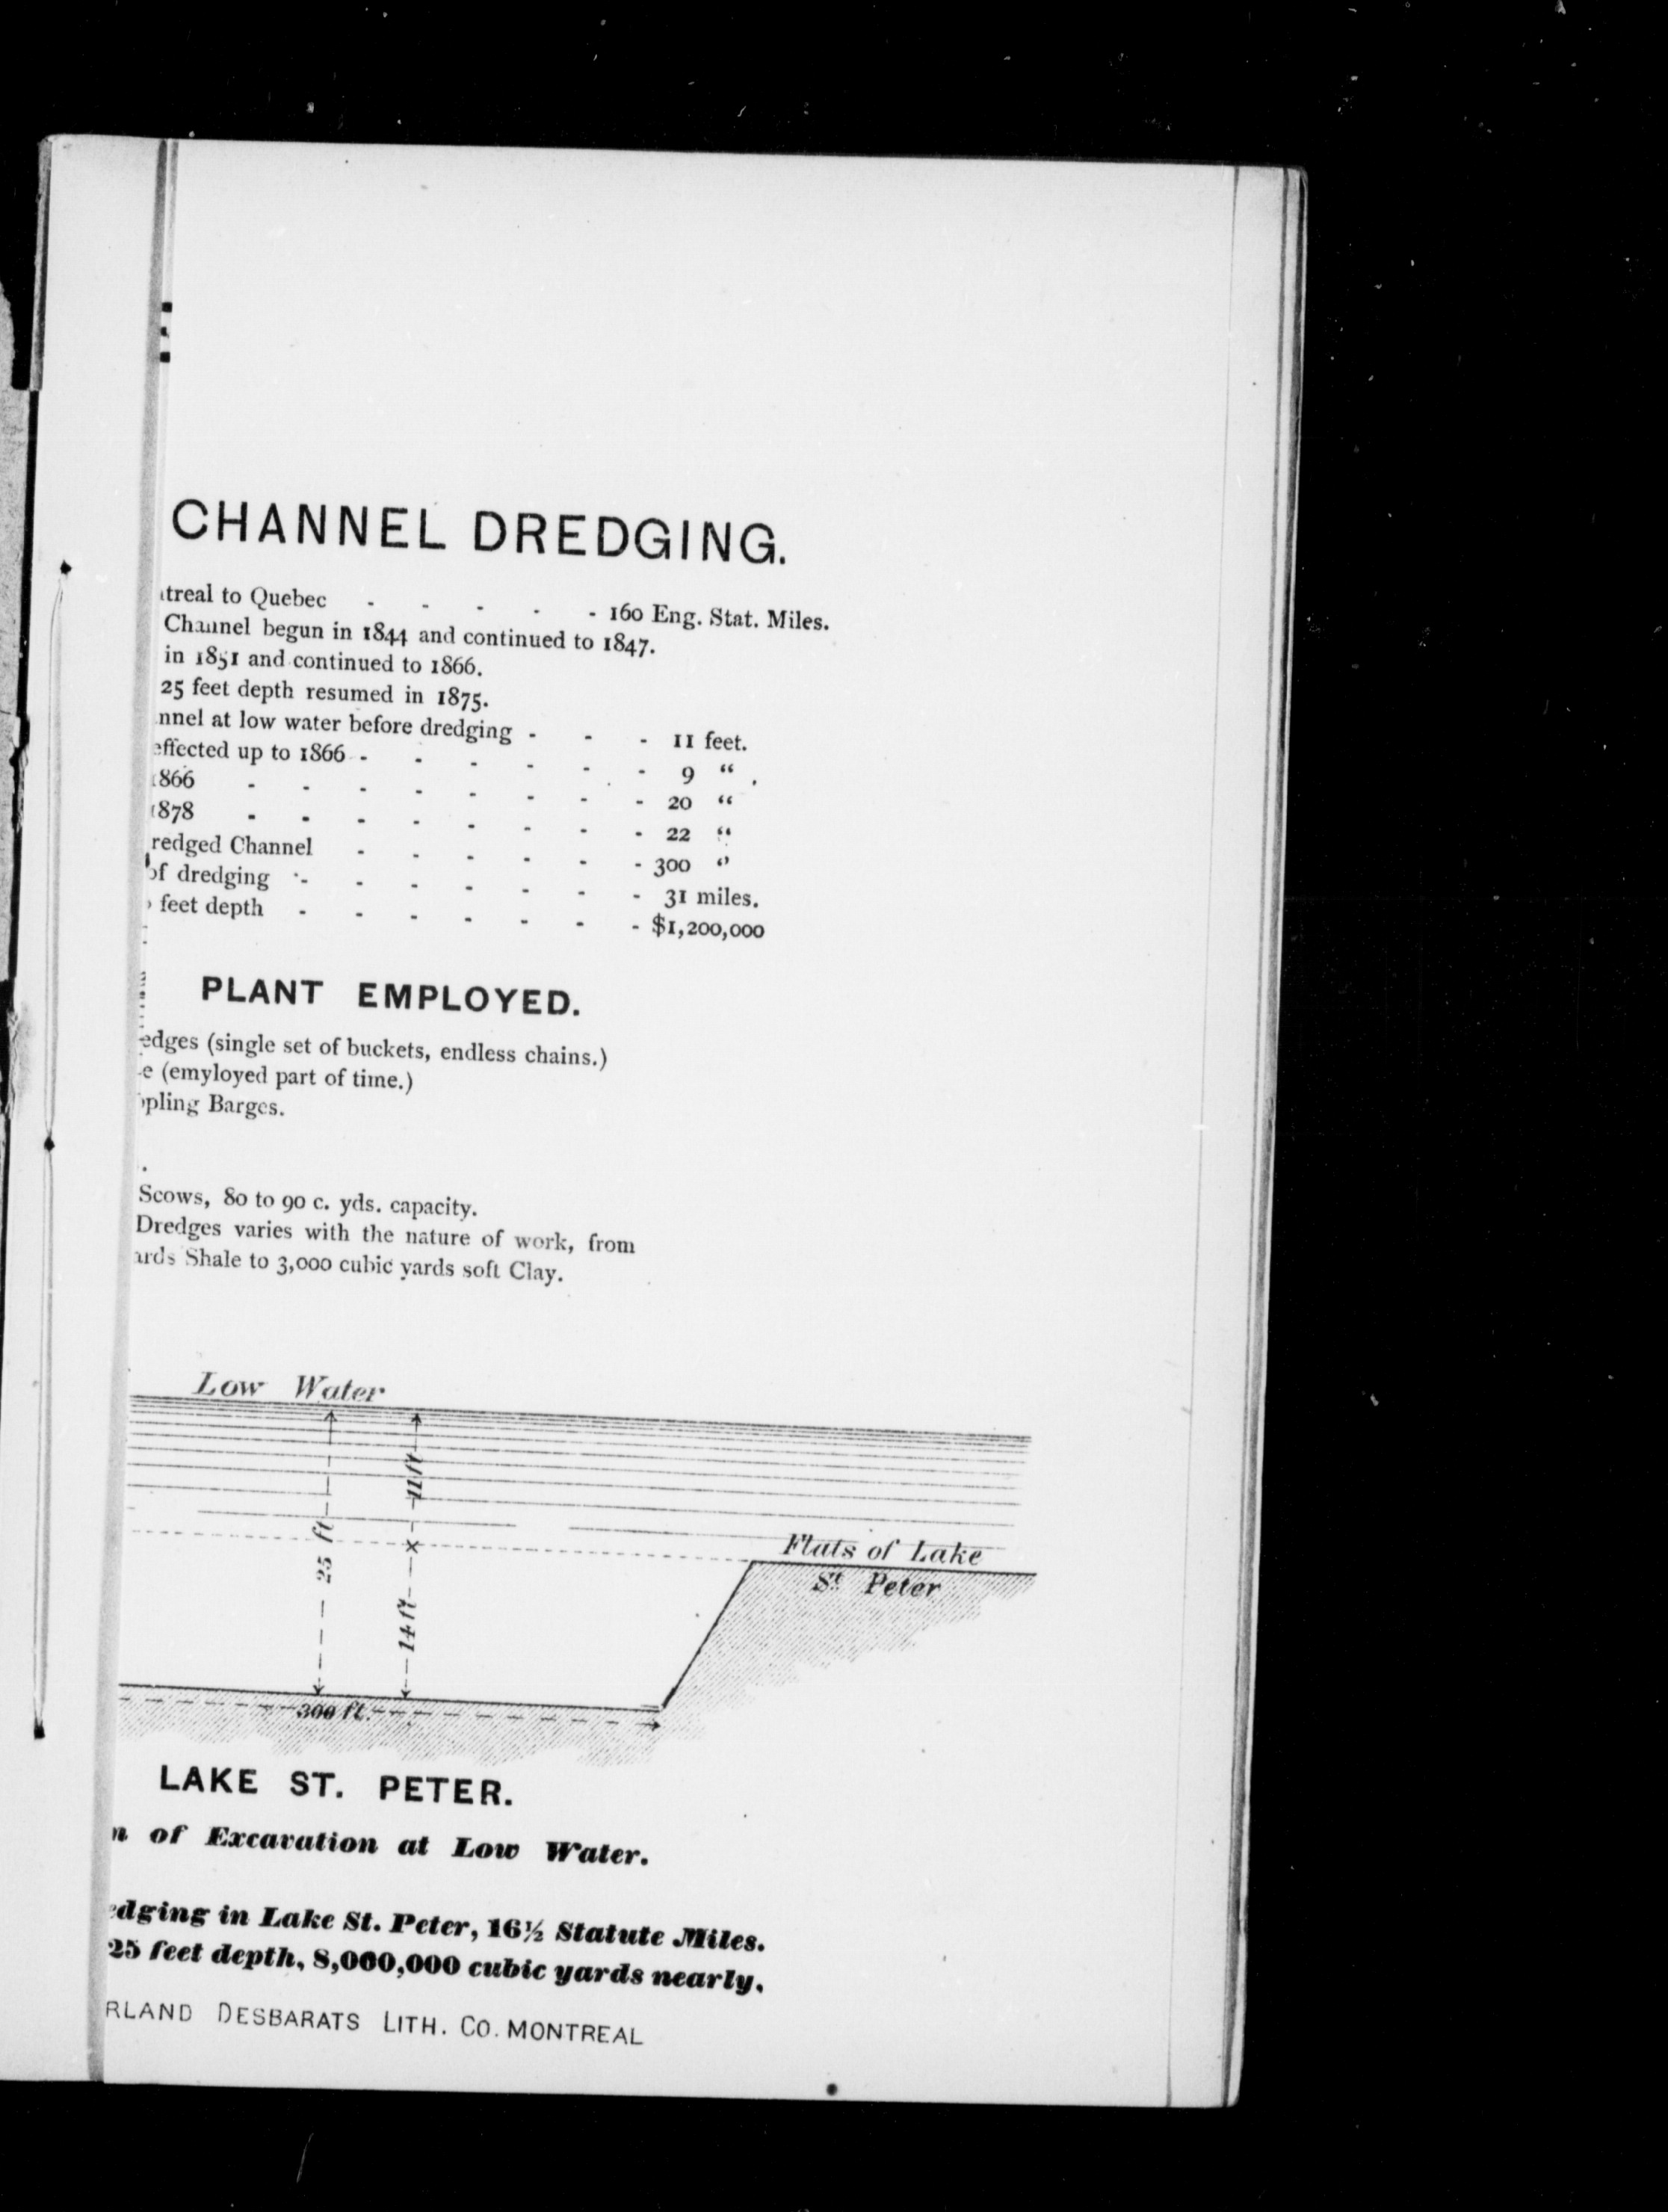 CHANNEL DREDGING.
treal to Quebec - - - - - 160 Eng. Stat. Miles.
Channel begun in 1844 and continued to 1847.
in 1851 and continued to 1866.
25 feet depth resumed in 1875.
nnel at low water before dredging - - - 11 feet.
effected up to 1866 - - - - - - 9 “
1866 - - - - - - - - 20 “
1878 - - - - - - - - 22 “
redged Channel - - - - - - 300 “
of dredging - - - - - - - 31 miles.
feet depth - - - - - - - $1,200,000
PLANT EMPLOYED.
edges (single set of buckets, endless chains.)
e (emyloyed part of time.)
pling Barges.
Scows, 80 to 90 c. yds. capacity.
Dredges varies with the nature of work, from
ards Shale to 3,000 cubic yards soft Clay.
Low Water
11 ft
25 ft
Flats of Lake
St. Peter
14 ft
300 ft.
LAKE ST. PETER.
n of Excavation at Low Water.
edging in Lake St. Peter, 16½ Statute Miles.
25 feet depth, 8,000,000 cubic yards nearly.
RLAND DESBARATS LITH. CO. MONTREAL